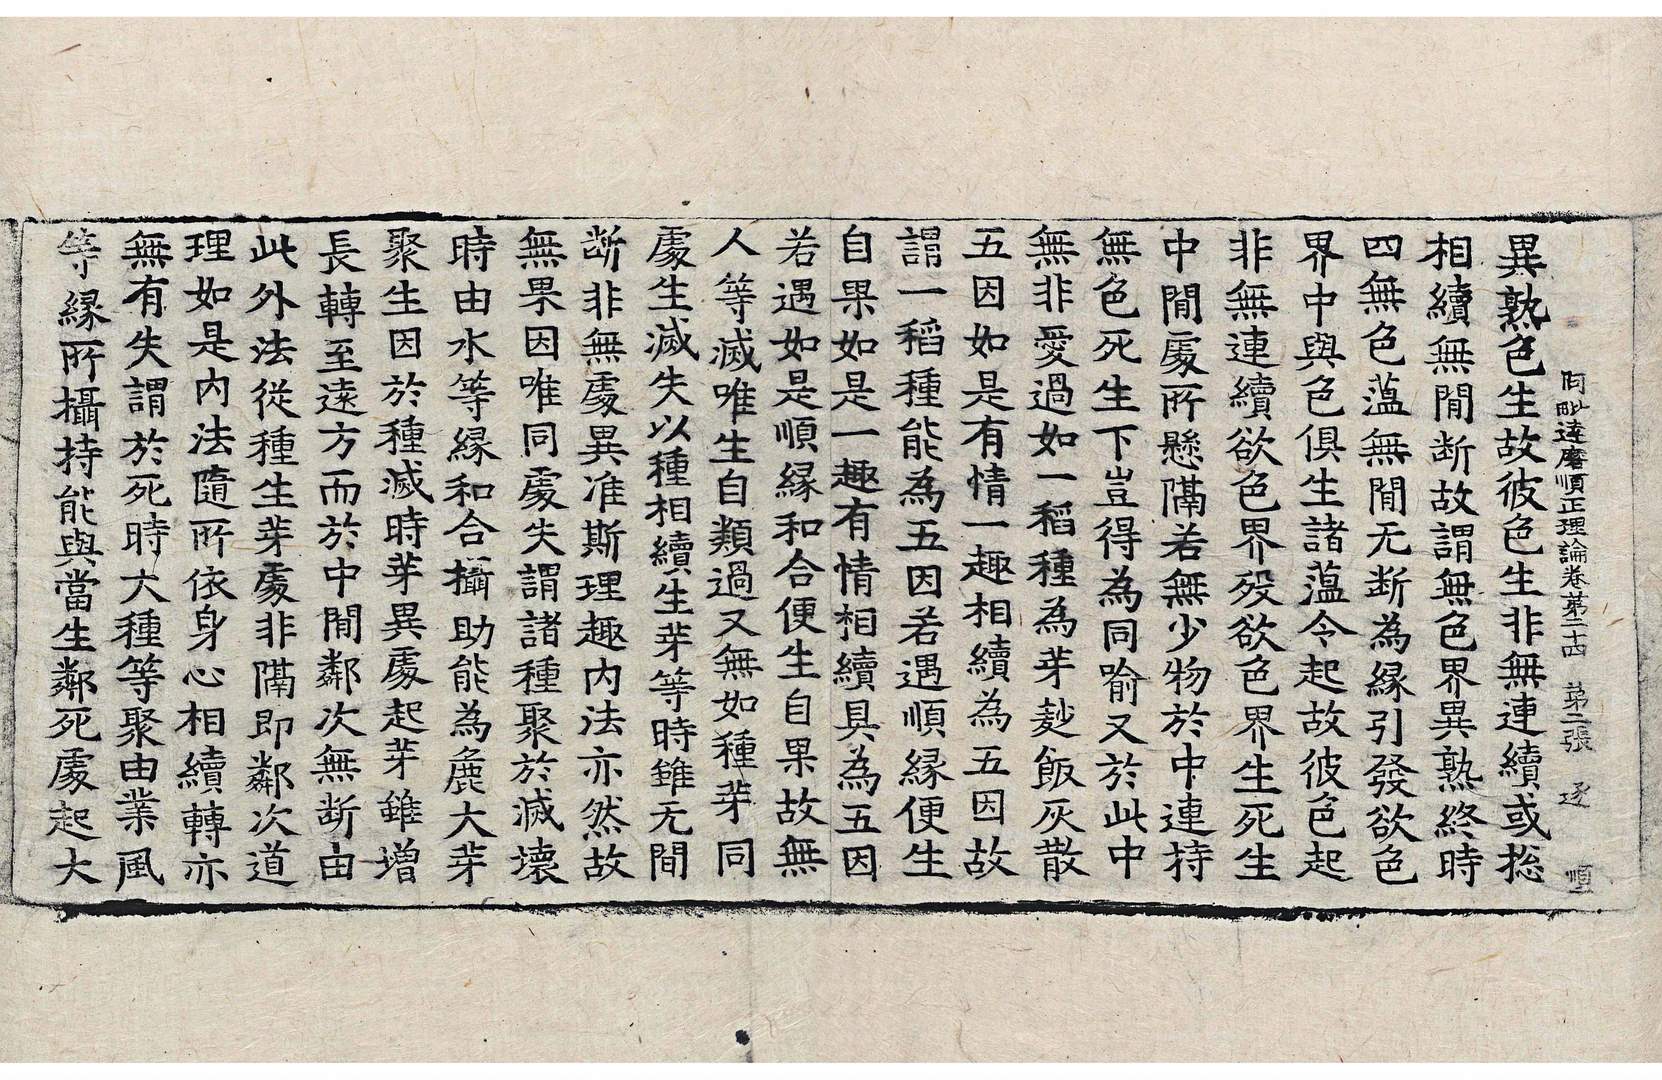 阿毗達磨順正理論卷第二十四 第二張 逐
異熟色生故彼色生非無連續或捴
相續無閒斷故謂無色界異熟終時
四無色蕰無閒无斷為緣引發欲色
界中與色俱生諸蕰令起故彼色起
非無連續欲色界歿欲色界生死生
中閒處所懸隔若無少物於中連持
無色死生下豈得為同喻又於此中
無非愛過如一稻種為芽麨飯灰散
五因如是有情一趣相續為五因故
謂一稻種能為五因若遇順緣便生
自果如是一趣有情相續具為五因
若遇如是順緣和合便生自果故無
人等滅唯生自類過又無如種芽同
處生滅失以種相續生芽等時雖无間
斷非無處異准斯理趣內法亦然故
無果因唯同處失謂諸種聚於滅壞
時由水等緣和合攝助能為麁大芽
聚生因於種滅時芽異處起芽雖增
長轉至遠方而於中閒鄰次無斷由
此外法從種生芽處非隔即鄰次道
理如是內法隨所依身心相續轉亦
無有失謂於死時大種等聚由業風
等緣所攝持能與當生鄰死處起大